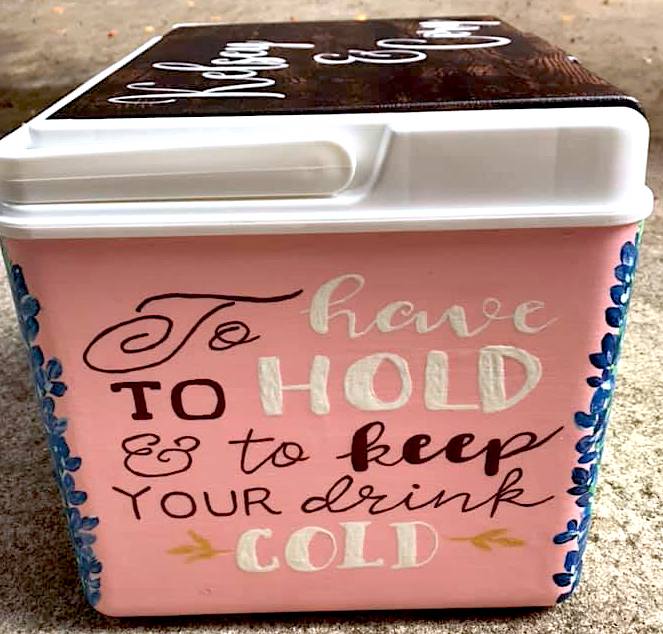 Kelsey &
To have
TO HOLD
& to keep
YOUR drink
COLD